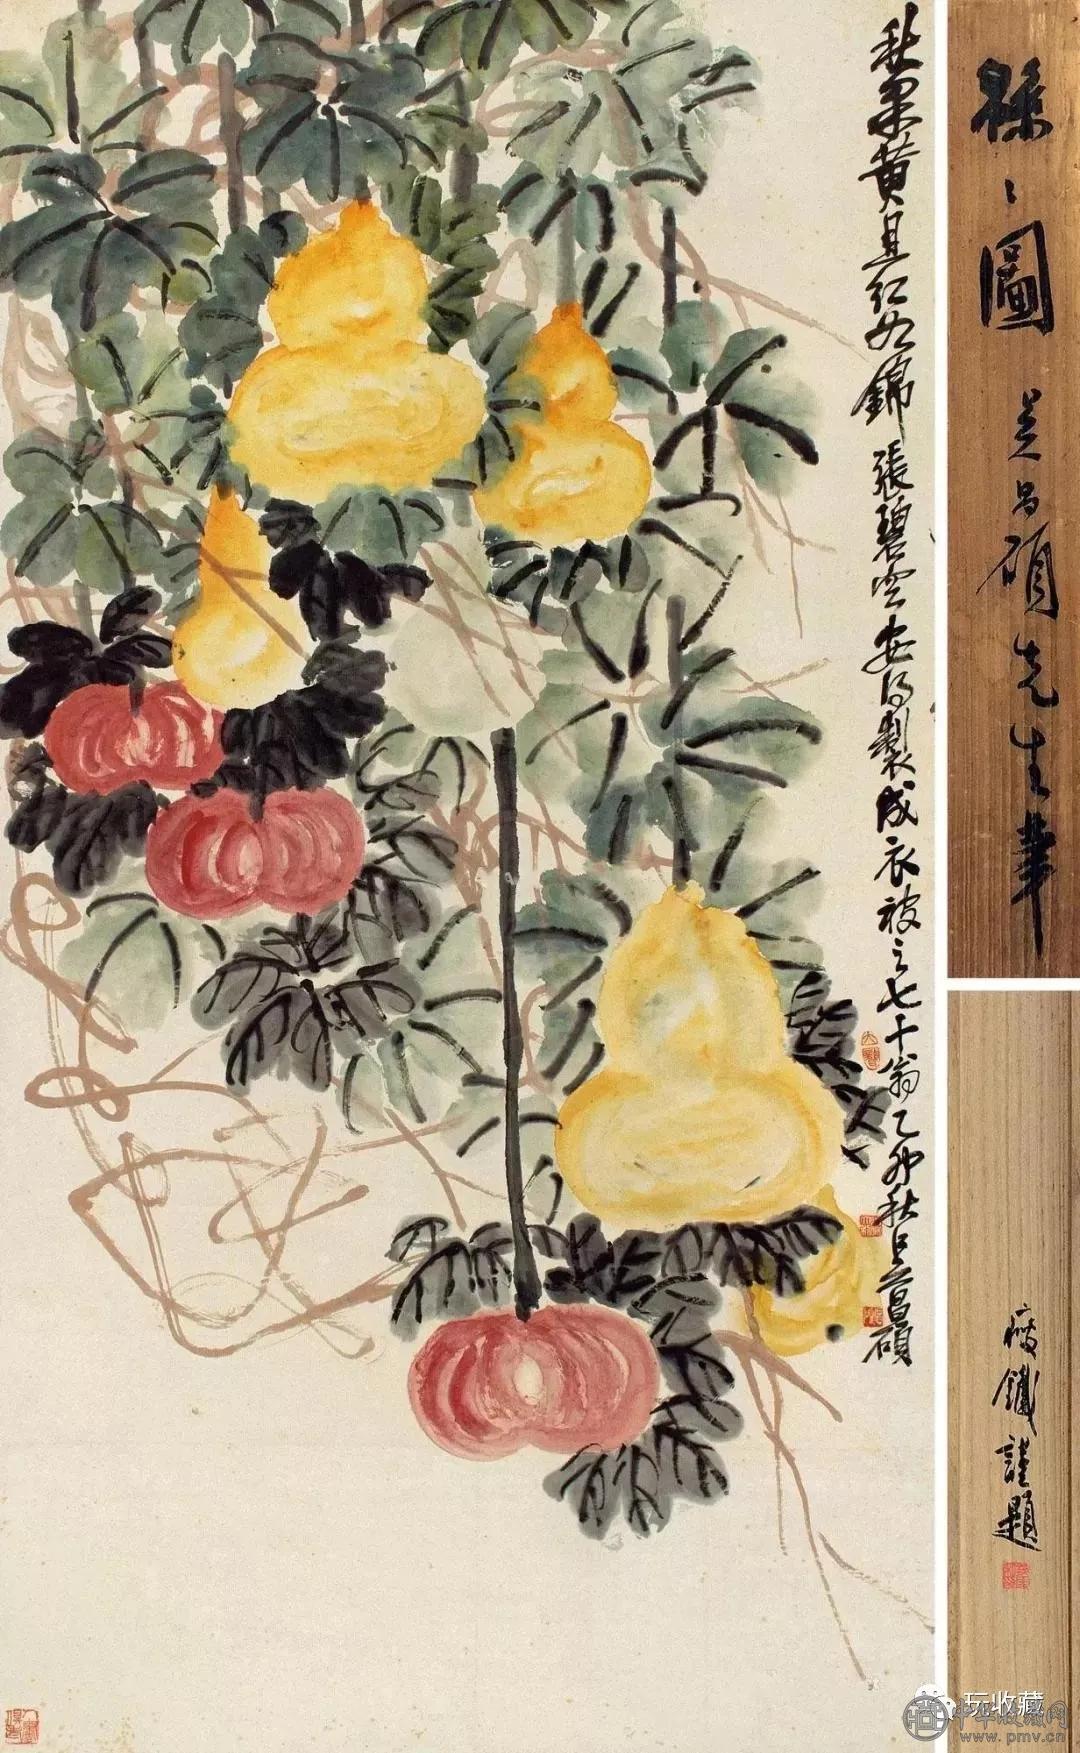 秋果黄且红如錦張碧空安得製成衣被之七十翁乙卯秋吳昌碩
緜〻圖 吴昌碩先生筆
瘦鐵謹題
玩收藏
中华收藏网
www.pmv.cn